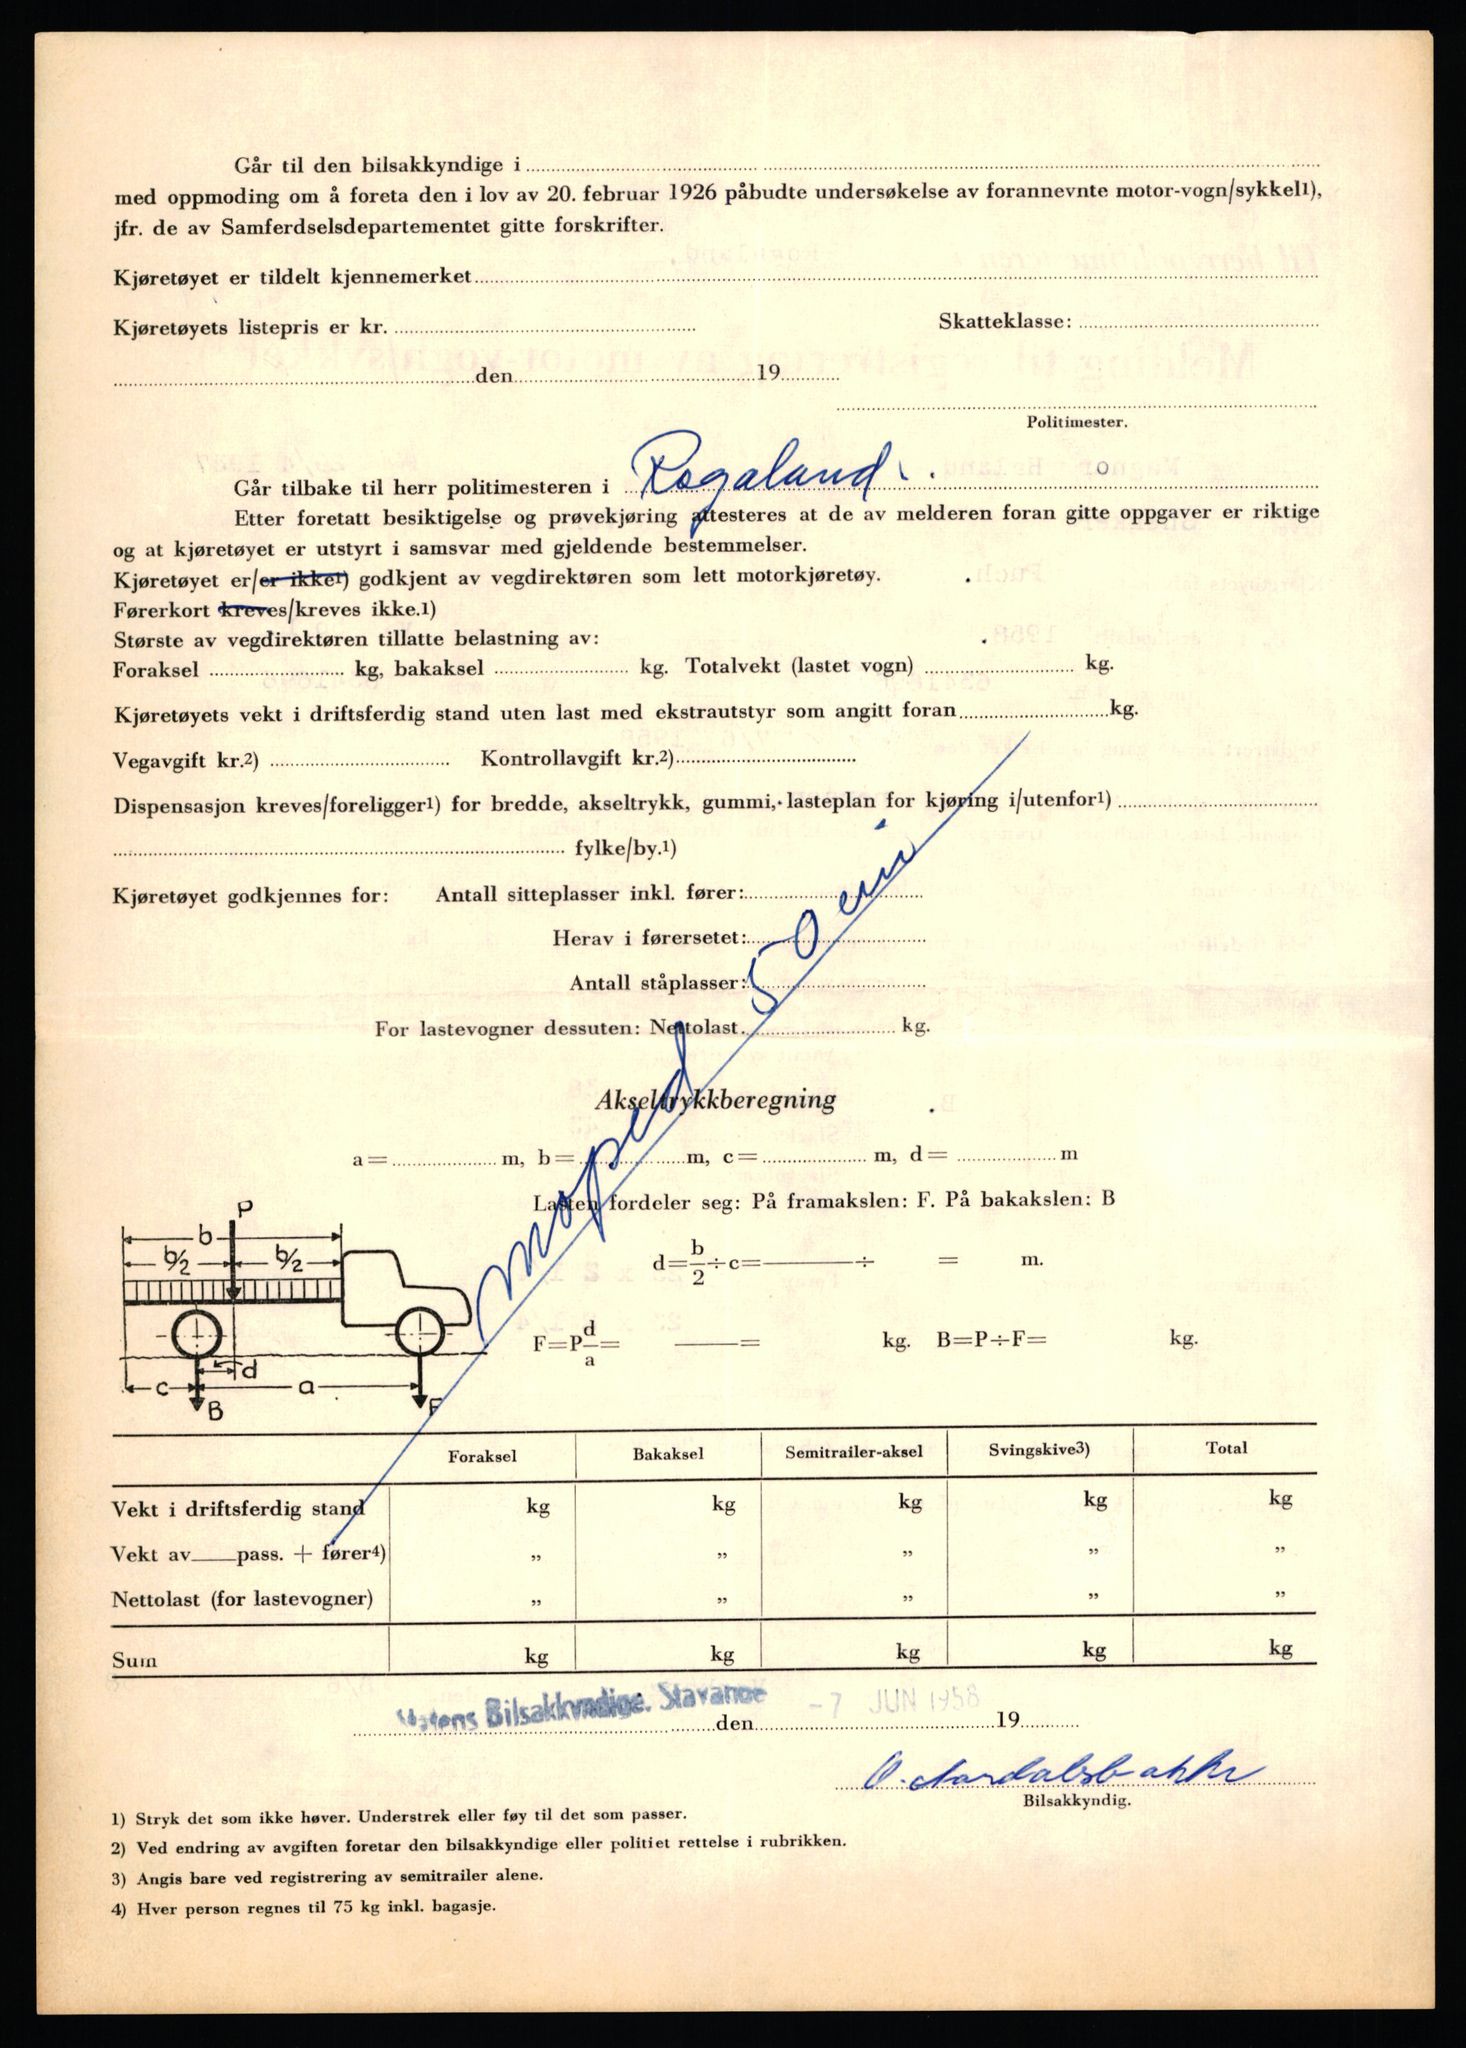 Går til den bilsakkyndige i
med oppmoding om å foreta den i lov av 20. februar 1926 påbudte undersøkelse av forannevnte motor-vogn/sykkel1),
jfr. de av Samferdselsdepartementet gitte forskrifter.
Kjøretøyet er tildelt kjennemerket
Kjøretøyets listepris er kr. Skatteklasse:
den 19
Politimester.
Går tilbake til herr politimesteren i Rogaland.
Etter foretatt besiktigelse og prøvekjøring attesteres at de av melderen foran gitte oppgaver er riktige
og at kjøretøyet er utstyrt i samsvar med gjeldende bestemmelser.
Kjøretøyet er/er ikke1) godkjent av vegdirektøren som lett motorkjøretøy.
Førerkort kreves/kreves ikke.1)
Største av vegdirektøren tillatte belastning av:
Foraksel kg, bakaksel kg. Totalvekt (lastet vogn) kg.
Kjøretøyets vekt i driftsferdig stand uten last med ekstrautstyr som angitt foran kg.
Vegavgift kr.2) Kontrollavgift kr.2)
Dispensasjon kreves/foreligger1) for bredde, akseltrykk, gummi, lasteplan for kjøring i/utenfor1)
fylke/by.1)
Kjøretøyet godkjennes for: Antall sitteplasser inkl. fører:
Herav i førersetet:
Antall ståplasser:
For lastevogner dessuten: Nettolast kg.
moped 50
Akseltrykkberegning
a= m, b= m, c= m, d= m
Lasten fordeler seg: På framakslen: F. På bakakslen: B
P
b
b/2 b/2
d=b/2÷c= ÷ = m.
F=P d/a= = kg. B=P÷F= kg.
d
c a
B F
Foraksel Bakaksel Semitrailer-aksel Svingskive3) Total
Vekt i driftsferdig stand kg kg kg kg kg
Vekt av pass. + fører4) „ „ „ „ „
Nettolast (for lastevogner) „ „ „ „ „
Sum kg kg kg kg kg
Statens Bilsakkyndige. Stavange -7 JUN 1958
den 19
Bilsakkyndig.
1) Stryk det som ikke høver. Understrek eller føy til det som passer.
2) Ved endring av avgiften foretar den bilsakkyndige eller politiet rettelse i rubrikken.
3) Angis bare ved registrering av semitrailer alene.
4) Hver person regnes til 75 kg inkl. bagasje.